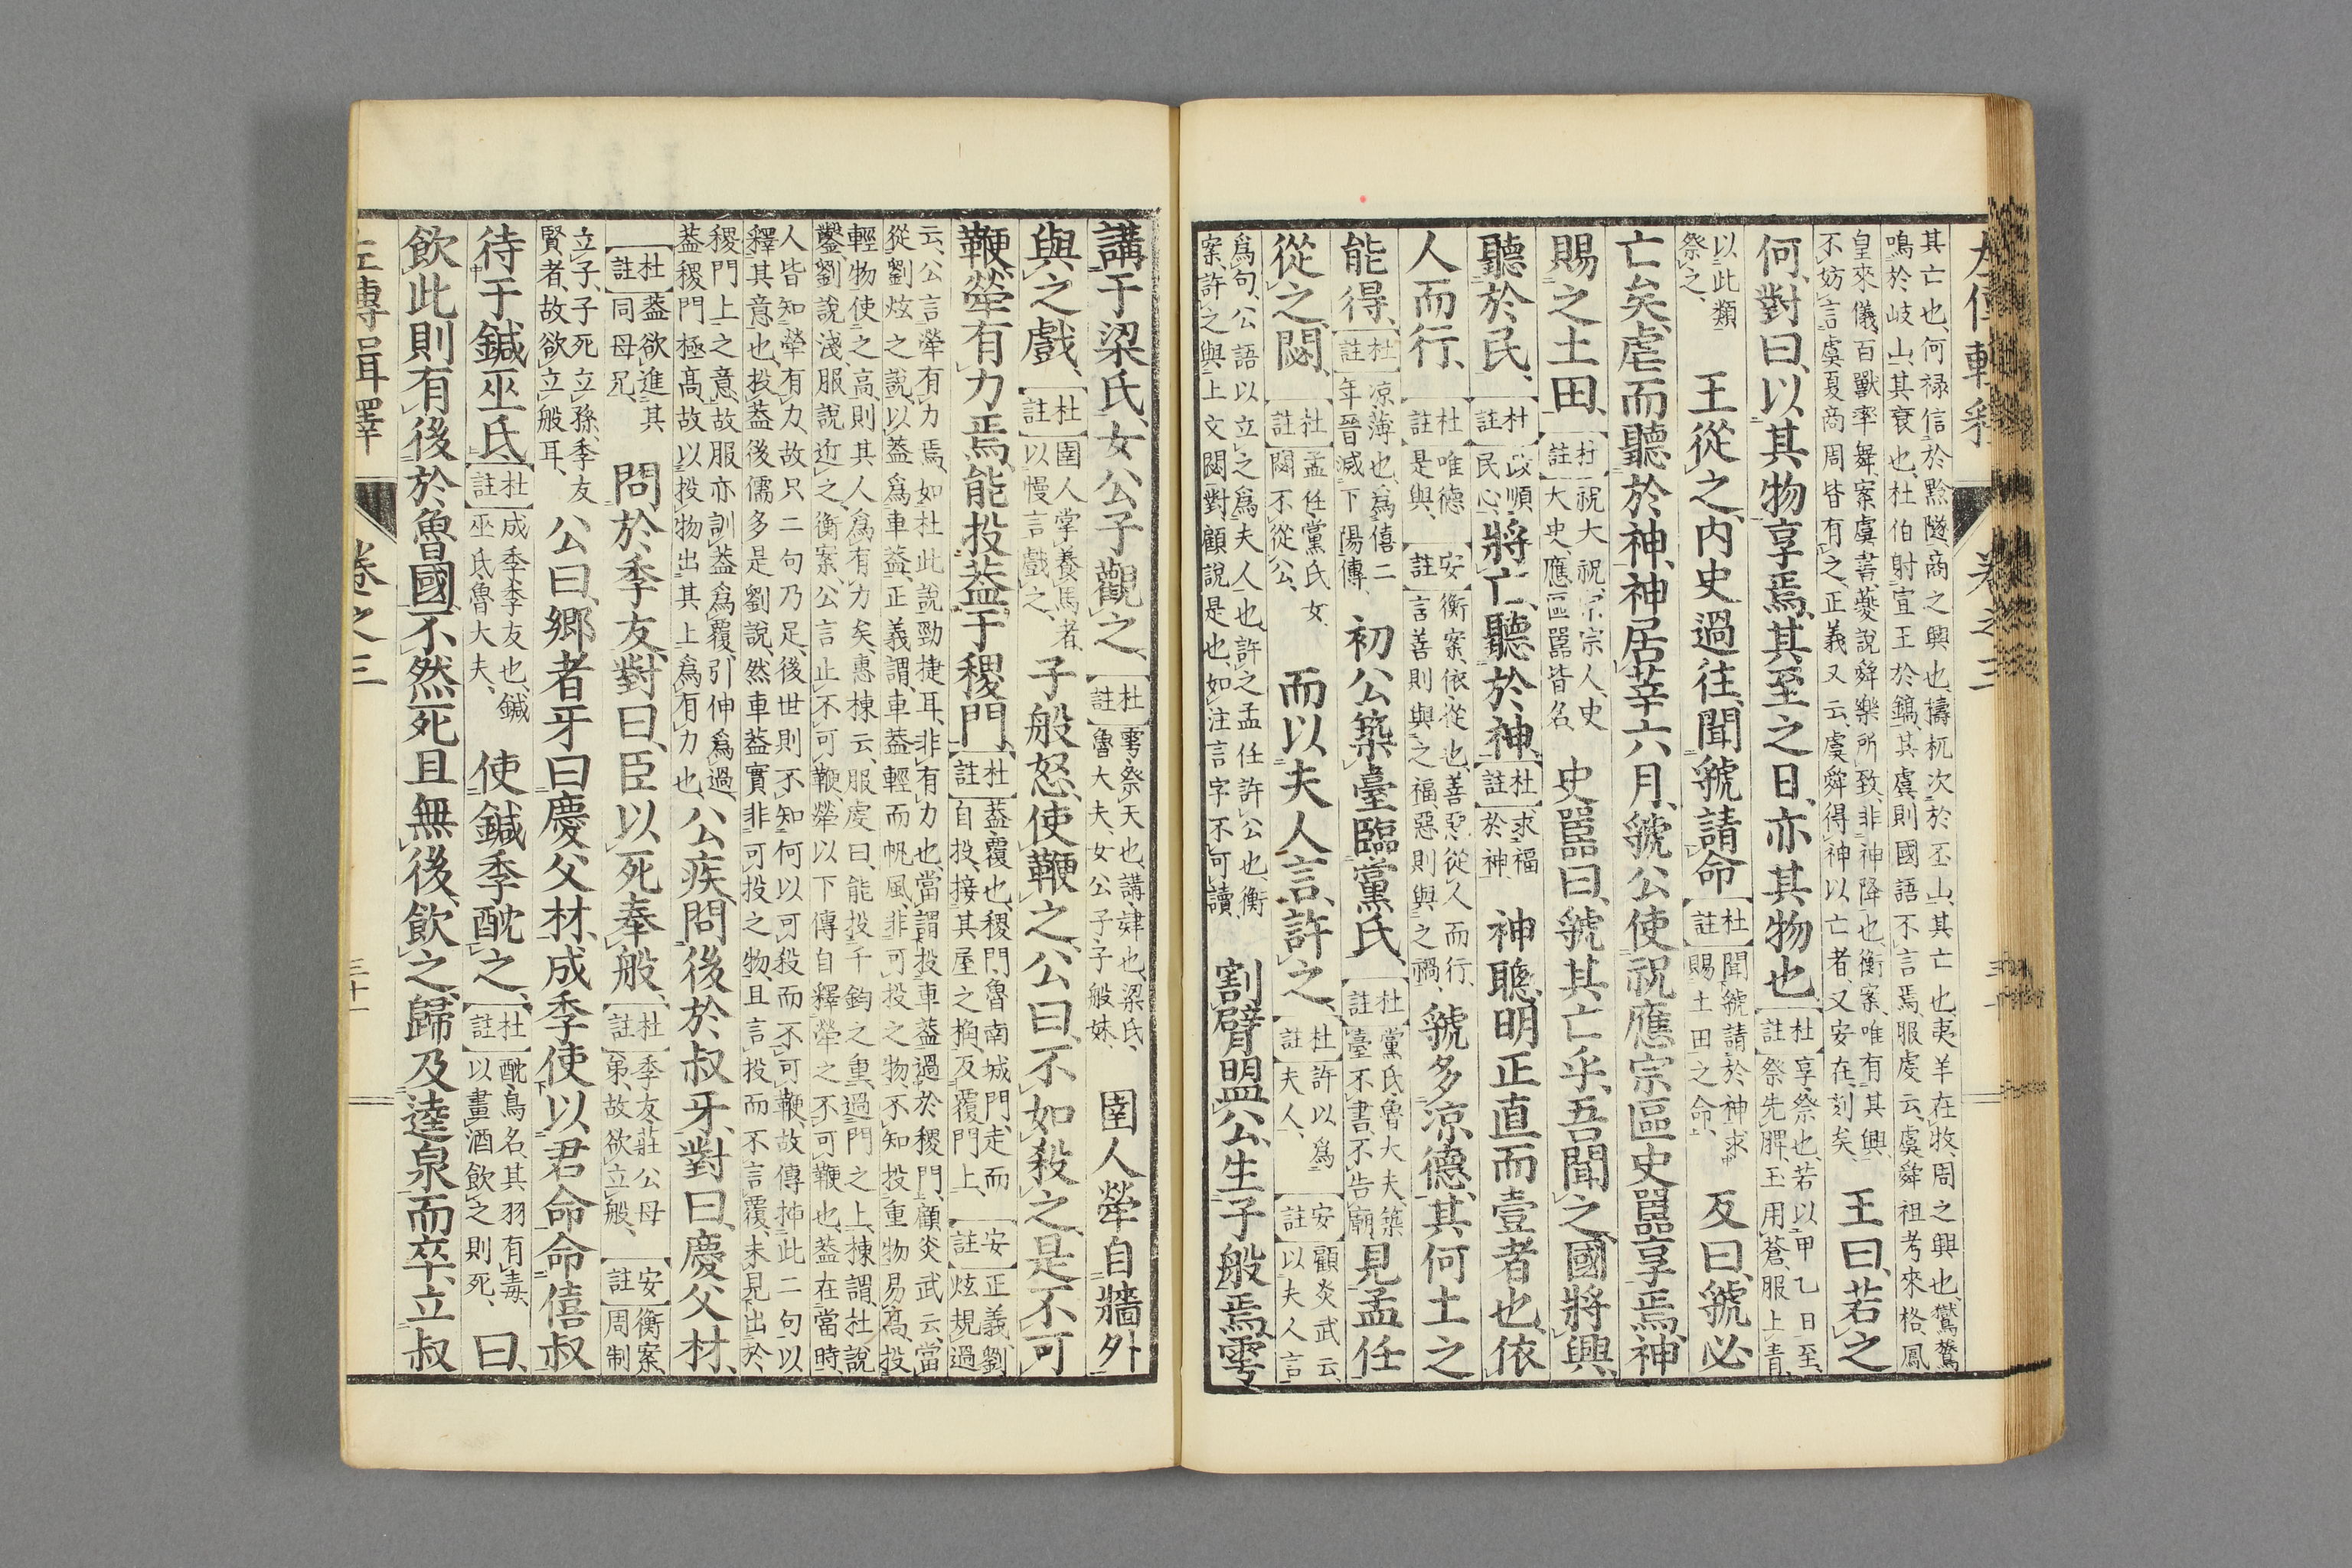 其亡也、何祿信於黔隧、商之興也、檮杌次於丕山、其亡也、夷羊在牧、周之興也、鸑鷟
鳴於岐山、其衰也、杜伯射宣王於鎬、其虞則國語不言焉、服虔云、虞舜祖考來格、鳳
皇來儀、百獸率舞、案虞書、夔說舜樂所致、非神降也、衡案、唯有其興、
不妨言虞夏商周皆有之、正義又云、虞舜得神以亡者、又安在、刻矣、
王曰、若之
何、對曰、以其物享焉、其至之日、亦其物也、
杜註 享祭也、若以甲乙日至、
祭先脾、玉用蒼、服上青、
以此類
祭之、
王從之、內史過往、聞虢請命、
杜註 聞虢請於神、求
賜土田之命、
反曰、虢必
亡矣、虐而聽於神、神居莘六月、虢公使祝應宗區史嚚享焉、神
賜之土田、
杜註 祝大祝、宗宗人、史
大史、應區嚚皆名、
史嚚曰、虢其亡乎、吾聞之、國將興、
聽於民、
杜註 政順
民心、
將亡、聽於神、
杜註 求福
於神、
神聰明正直而壹者也、依
人而行、
杜註 唯德
是與、
安註 衡案、依、從也、善惡從人而行、
言善則與之福、惡則與之禍、
虢多涼德、其何土之
能得、
杜註 涼薄也、爲僖二
年晉滅下陽傳、
初公築臺臨黨氏、
杜註 黨氏、魯大夫、築
臺不書、不告廟、
見孟任
從之、閟、
杜註 孟任黨氏女、
閟不從公、
而以夫人言、許之、
杜註 許以爲
夫人、
安註 顧炎武云、
以夫人言
爲句、公語以立之爲夫人也、許之孟任許公也、衡
案、許之與上文閟對、顧說是也、如注言字不可讀、
割臂盟公、生子般焉、雩
講于梁氏、女公子觀之、
杜註 雩、祭天也、講肄也、梁氏、
魯大夫、女公子子般妹、
圉人犖自牆外
與之戲、
杜註 圉人掌養馬者、
以慢言戲之、
子般怒、使鞭之、公曰、不如殺之、是不可
鞭、犖有力焉、能投葢于稷門、
杜註 葢覆也、稷門、魯南城門、走而
自投、接其屋之桷、反覆門上、
安註 正義、劉
炫規過
云、公言犖有力焉、如杜此說、勁捷耳、非有力也、當謂投車葢過於稷門、顧炎武云、當
從劉炫之說、以葢爲車葢、正義謂、車葢輕而帆風、非可投之物、不知投重物易高、投
輕物使之高、則其人爲有力矣、惠棟云、服虔曰、能投千鈞之重、過門之上、棟謂、杜說
鑿、劉說淺、服說近之、衡案、公言止不可鞭、犖以下傳自釋犖之不可鞭也、葢在當時、
人皆知犖有力、故只二句乃足、後世則不知何以可殺而不可鞭、故傳揷此二句以
釋其意也、投葢後儒多是劉說、然車葢實非可投之物、且言投而不言覆、未見出於
稷門上之意、故服亦訓葢爲覆、引伸爲過、
葢稷門極高、故以投物出其上爲有力也、
公疾、問後於叔牙、對曰、慶父材、
杜註 葢欲進其
同母兄、
問於季友、對曰、臣以死奉般、
杜註 季友、莊公母
弟、故欲立般、
安註 衡案、
周制
立子、子死立孫、季友
賢者、故欲立般耳、
公曰、鄉者牙曰慶父材、成季使以君命命僖叔
待于鍼巫氏、
杜註 成季季友也、鍼
巫氏魯大夫、
使鍼季酖之、
杜註 酖、鳥名、其羽有毒、
以畫酒、飲之則死、
曰、
飲此則有後於魯國、不然死且無後、飲之、歸及逵泉而卒、立叔
左傳輯釋 卷之三 三十一